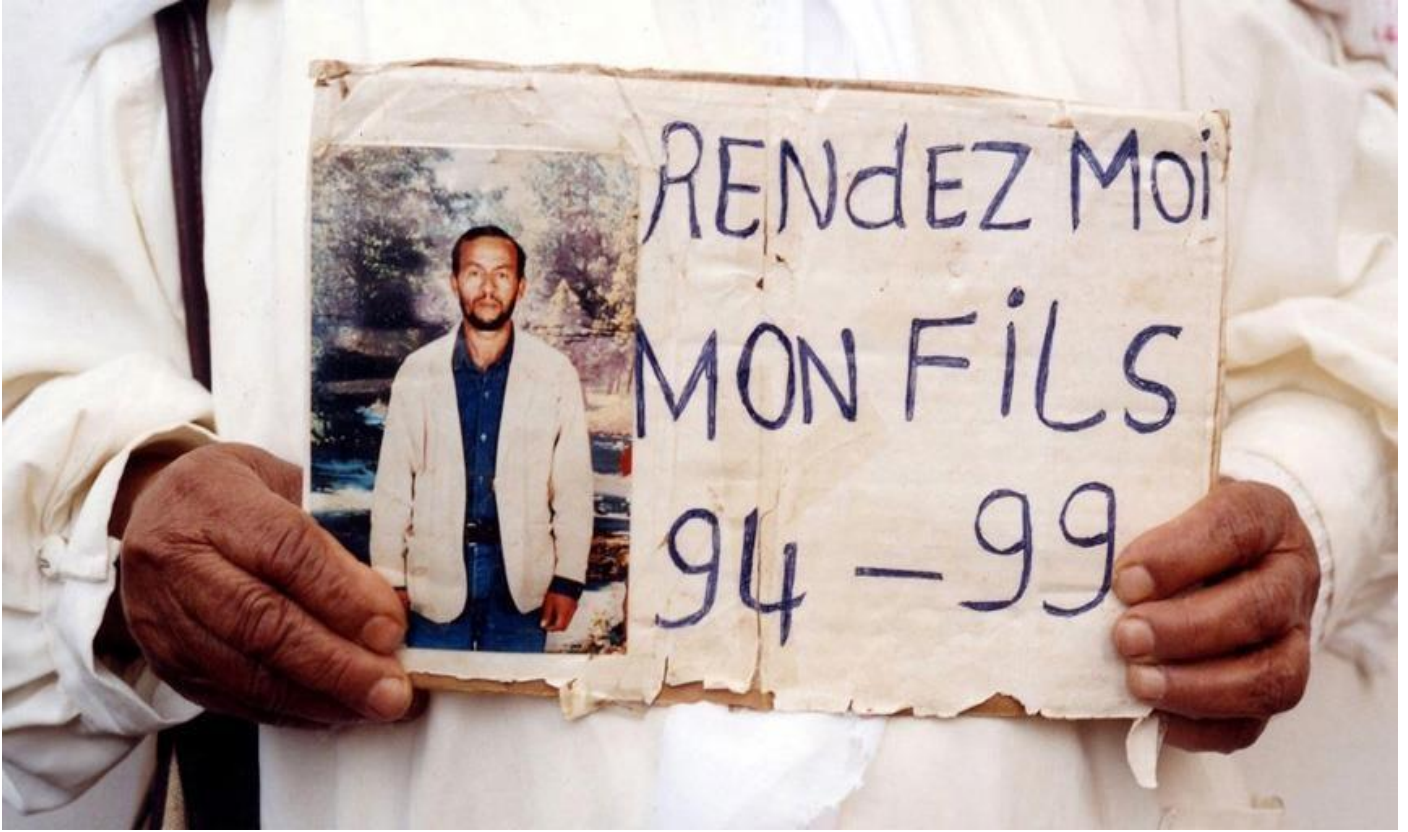 RENdEZ MOi
MON FiLS
94 - 99